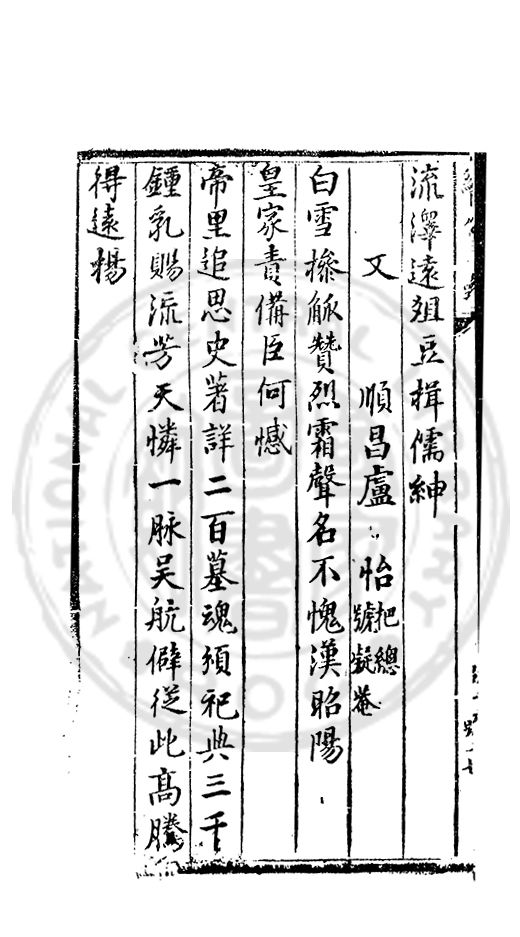 流澤遠俎豆楫儒紳
又 順昌盧怡把總號凝菴
白雪操觚贊烈霜聲名不愧漢昭陽
皇家責備臣何憾
帝里追思史著詳二百墓魂須祀典三千
鍾乳賜流芳天憐一脉吴航僻從此髙騰
得遠楊